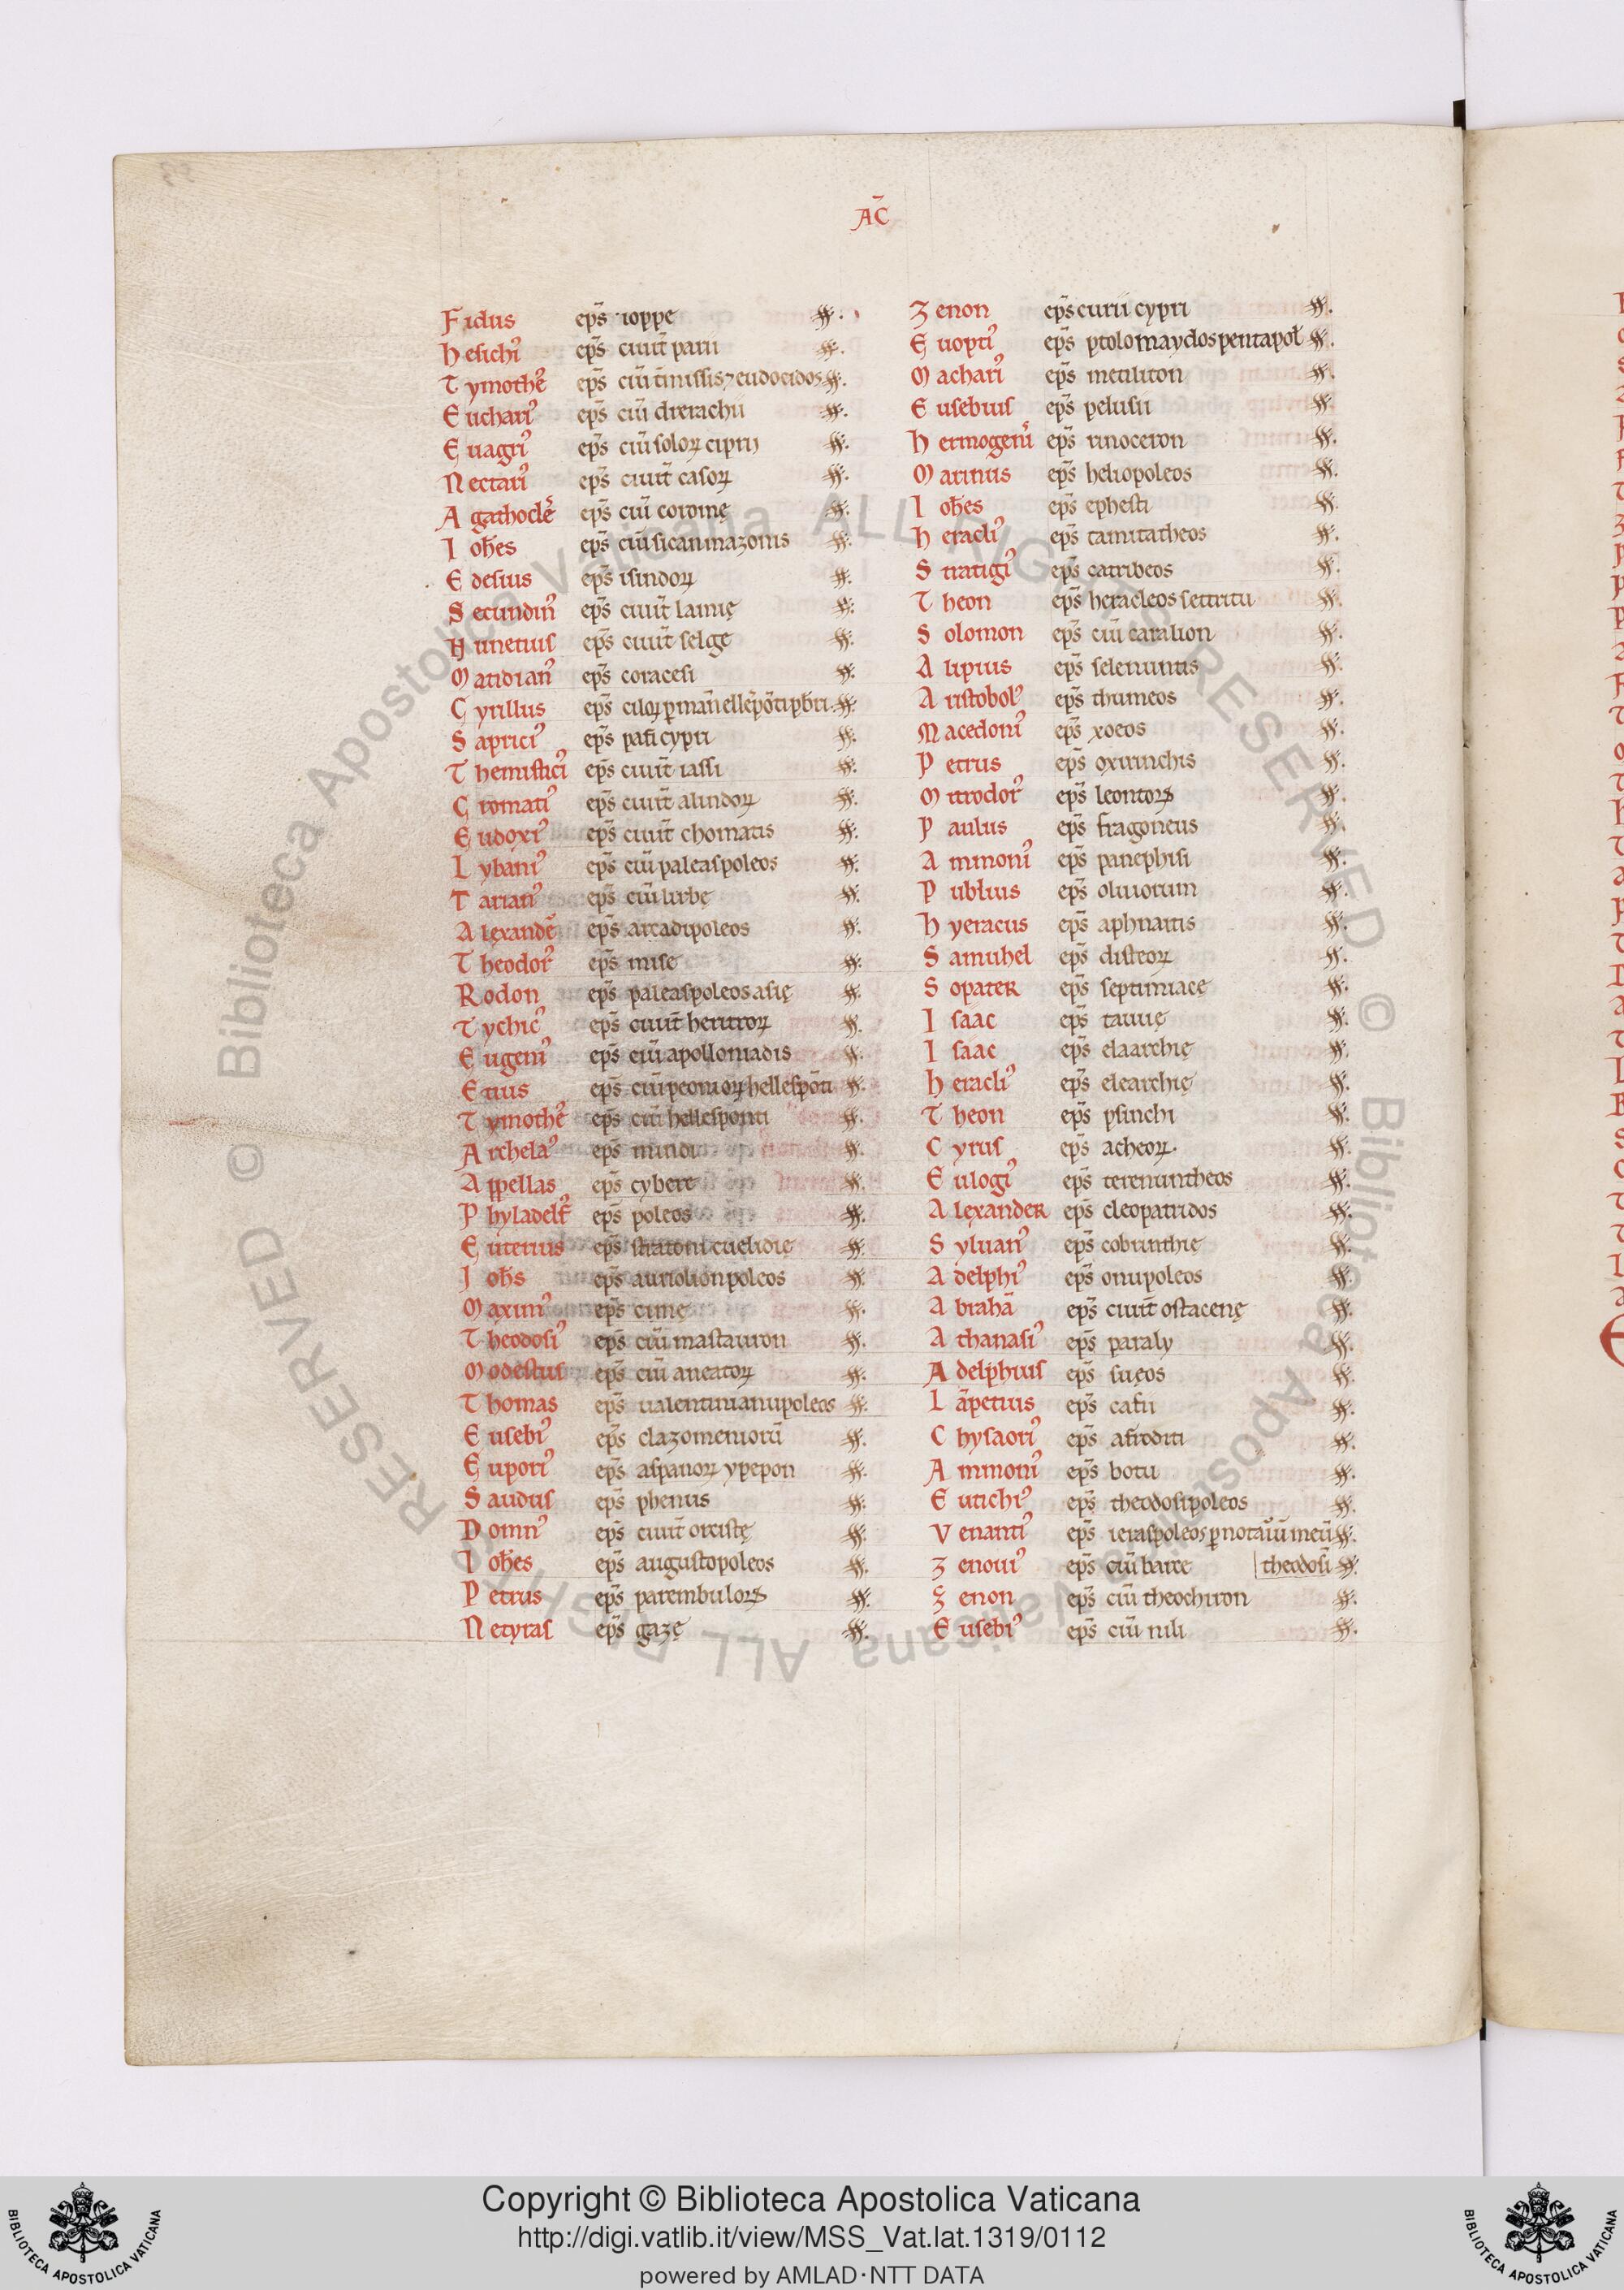 AC̄
Fidus ep̄s ioppe ss.
Hesichi᾽ ep̄s ciuit̄ parii ss.
Tymothe᾽ ep̄s ciū t̄missis ⁊ eudocidos ss.
Euchari᾽ ep̄s ciū dirrachii ss.
Euagri᾽ ep̄s ciū soloꝝ ciprij ss.
Nectari᾽ ep̄s ciuit̄ casoꝝ ss.
Agathocle᾽s ep̄s ciū coronę ss.
Ioh̄es ep̄s ciū sicanmazonis ss.
Edesius ep̄s isindoꝝ ss.
Secundin᾽ ep̄s ciuit̄ lamię ss.
Nunetius ep̄s ciuit̄ selge ss.
Matidian᾽ ep̄s coracesi ss.
Cyrillus ep̄s ciloꝝ ꝑ man̄ ellep̄ōti pb̄ri ss.
Saprici᾽ ep̄s pafi cypri ss.
Themistici᾽ ep̄s ciuit̄ iassi ss.
Cromati᾽ ep̄s ciuit̄ alindoꝝ ss.
Eudoxi᾽ ep̄s ciuit̄ chomatis ss.
Lybani᾽ ep̄s ciū paleaspoleos ss.
Tarian᾽ ep̄s ciū lirbę ss.
Alexande᾽ ep̄s arcadipoleos ss.
Theodor᾽ ep̄s nise ss.
Rodon ep̄s paleaspoleos asię ss.
Tychic᾽ ep̄s ciuit̄ heritroꝝ ss.
Eugeni᾽ ep̄s ciū apolloniadis ss.
Etius ep̄s ciū peonioꝝ hellespōti ss.
Tymothe᾽ ep̄s ciū hellesponti ss.
Archela᾽ ep̄s mindi ss.
Appellas ep̄s cybere ss.
Phyladelf᾽ ep̄s poleos ss.
Euterius ep̄s stratoni cuelidię ss.
Ioh̄s ep̄s auriolionpoleos ss.
Maximi᾽ ep̄s cimę ss.
Theodosi᾽ ep̄s ciū mastauron ss.
Modestus ep̄s ciū aneatoꝝ ss.
Thomas ep̄s ualentinianupoleos ss.
Eusebi᾽ ep̄s clazomeniorū ss.
Eupori᾽ ep̄s aspanoꝝ ypepon ss.
Saudus ep̄s phenus ss.
Domn᾽ ep̄s ciuit̄ orcistę ss.
Ioh̄es ep̄s augustopoleos ss.
Petrus ep̄s parembuloꝝ ss.
Netyras ep̄s gazę ss.
Zenon ep̄s curii cypri ss.
Euopti᾽ ep̄s ptolomaydos pentapoł ss.
Machari᾽ ep̄s metiliton ss.
Eusebius ep̄s pelusii ss.
Hermogeni᾽ ep̄s rinoceron ss.
Marinus ep̄s heliopoleos ss.
Ioh̄es ep̄s ephesti ss.
Heracli᾽ ep̄s tamitatheos ss.
Stratigi᾽ ep̄s catribeos ss.
Theon ep̄s heracleos settritu ss.
Solomon ep̄s ciū caralion ss.
Alipius ep̄s selenuntis ss.
Aristobol᾽ ep̄s thumeos ss.
Macedoni᾽ ep̄s xoeos ss.
Petrus ep̄s oxirinchis ss.
Mitrodor᾽ ep̄s leontoꝝ ss.
Paulus ep̄s fragoneus ss.
Ammoni᾽ ep̄s panephisi ss.
Publius ep̄s oliuorum ss.
Hyeracus ep̄s aphnaitis ss.
Samuhel ep̄s disteoꝝ ss.
Sopater ep̄s septimiacę ss.
Isaac ep̄s tauuę ss.
Isaac ep̄s elaarchię ss.
Heracli᾽ ep̄s elearchię ss.
Theon ep̄s psinchi ss.
Cyrus ep̄s acheoꝝ. ss.
Eulogi᾽ ep̄s terenuntheos ss.
Alexander ep̄s cleopatridos ss.
Syluan᾽ ep̄s cobrinthię ss.
Adelphi᾽ ep̄s onupoleos ss.
Abrahā ep̄s ciuit̄ ostacenę ss.
Athanasi᾽ ep̄s paraly ss.
Adelphius ep̄s suęos ss.
Lāpetius ep̄s cafii ss.
Chysaori᾽ ep̄s afroditi ss.
Ammoni᾽ ep̄s botu ss.
Eutichi᾽ ep̄s theodosipoleos ss.
Venanti᾽ ep̄s ieraspoleos ꝑ notariū meū ss.
Zenoui᾽ ep̄s ciū barce theodosiū ss.
Zenon ep̄s ciū theochiron ss.
Eusebi᾽ ep̄s ciū nili ss.
© Biblioteca Apostolica Vaticana ALL RIGHTS RESERVED © Biblioteca Apostolica Vaticana ALL RIGHTS RESERVED
Copyright © Biblioteca Apostolica Vaticana
http://digi.vatlib.it/view/MSS_Vat.lat.1319/0112
powered by AMLAD·NTT DATA
BIBLIOTECA APOSTOLICA VATICANA
BIBLIOTECA APOSTOLICA VATICANA